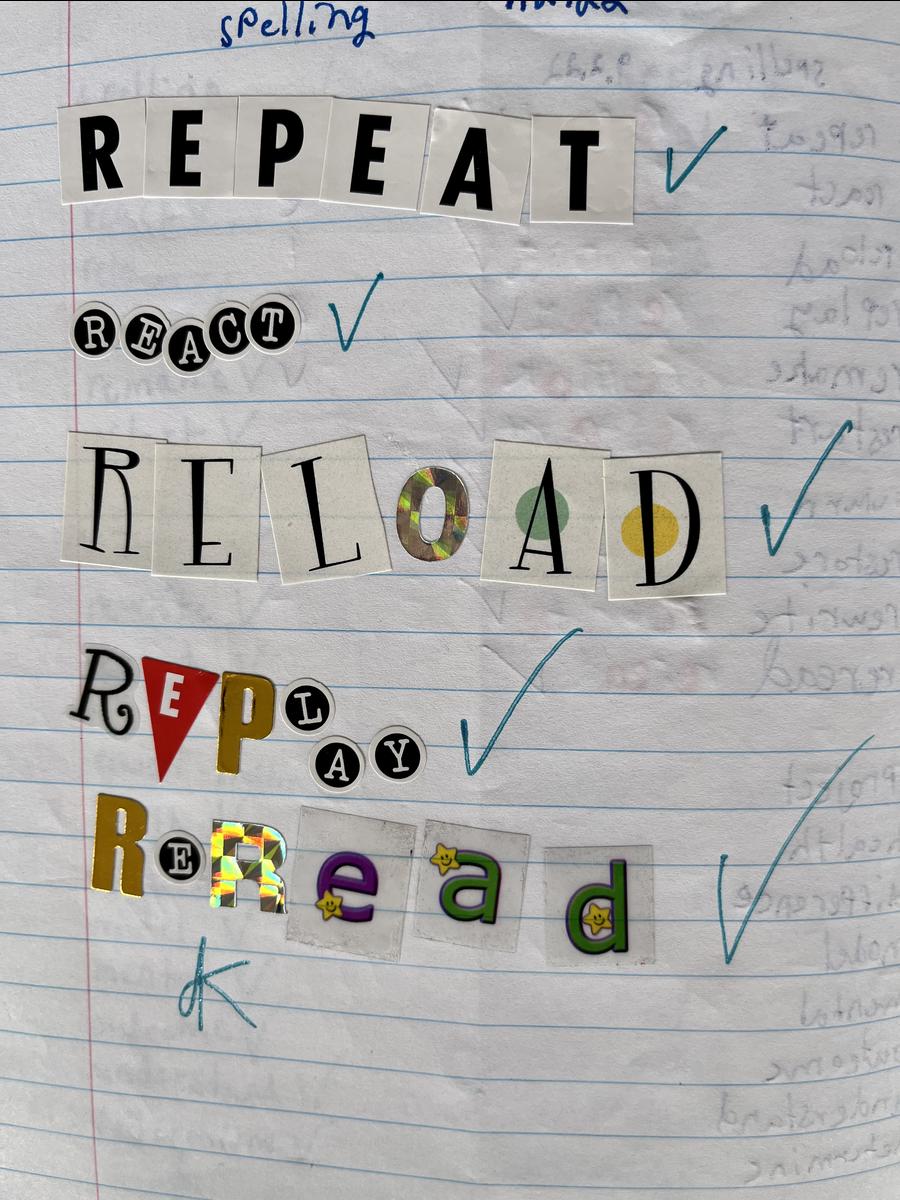 spelling
REPEAT
REACT
RELOAD
REPLAY
RERead
K